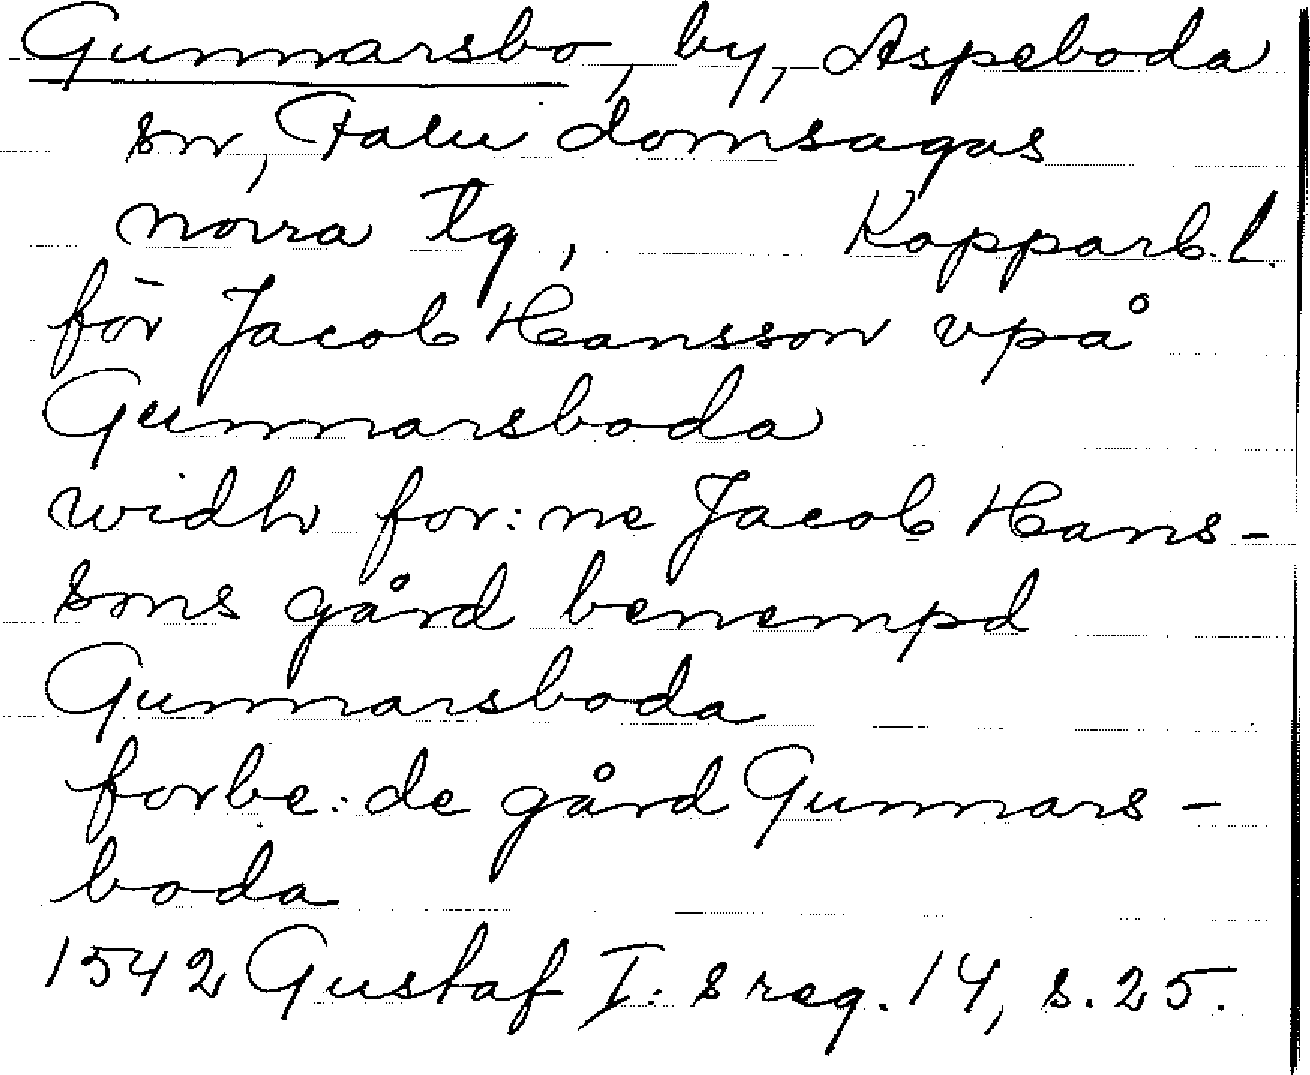 Gunnarsbo, by, Aspeboda
sn, Falu domsagas
norra tg, Kopparb. l.
för Jacob Hansson vpå
Gunnarsboda
widh for: ne Jacob Hans-
sons gård benempd
Gunnarsboda
forbe: de gård Gunnars-
boda
1542 Gustaf I:s reg. 14, s. 25.